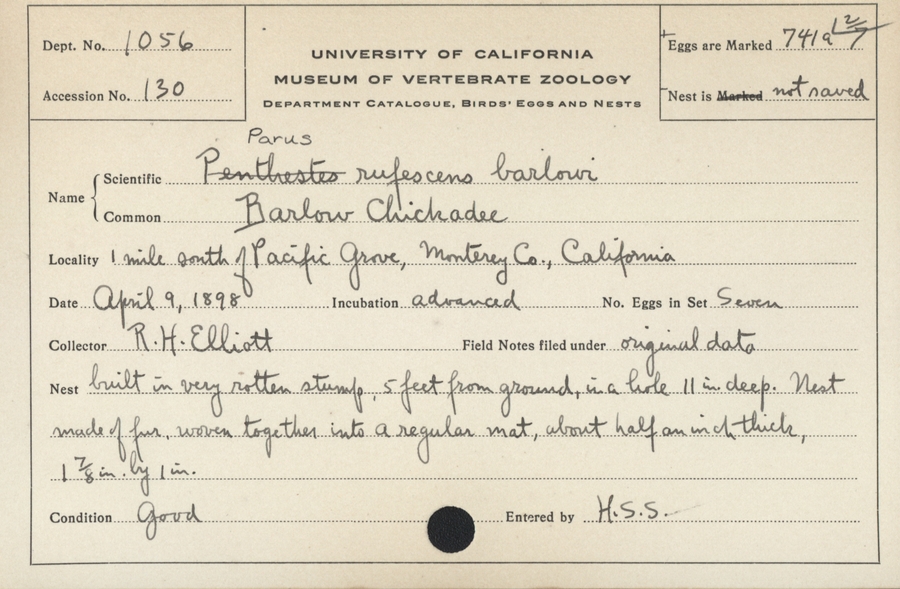 Dept. No. 1056
Accession No. 130
UNIVERSITY OF CALIFORNIA
MUSEUM OF VERTEBRATE ZOOLOGY
DEPARTMENT CATALOGUE, BIRDS' EGGS AND NESTS
Eggs are Marked 741a 1 2/7
Nest is Marked not saved
Parus
Name
Scientific Penthestes rufescens barlowi
Common Barlow Chickadee
Locality 1 mile south of Pacific Grove, Monterey Co., California
Date April 9, 1898 Incubation advanced No. Eggs in Set Seven
Collector R.H. Elliott Field Notes filed under original data
Nest built in very rotten stump, 5 feet from ground, in a hole 11 in. deep. Nest
made of fur, woven together into a regular mat, about half an inch thick,
1 7/8 in. by 1 in.
Condition Good Entered by H.S.S.